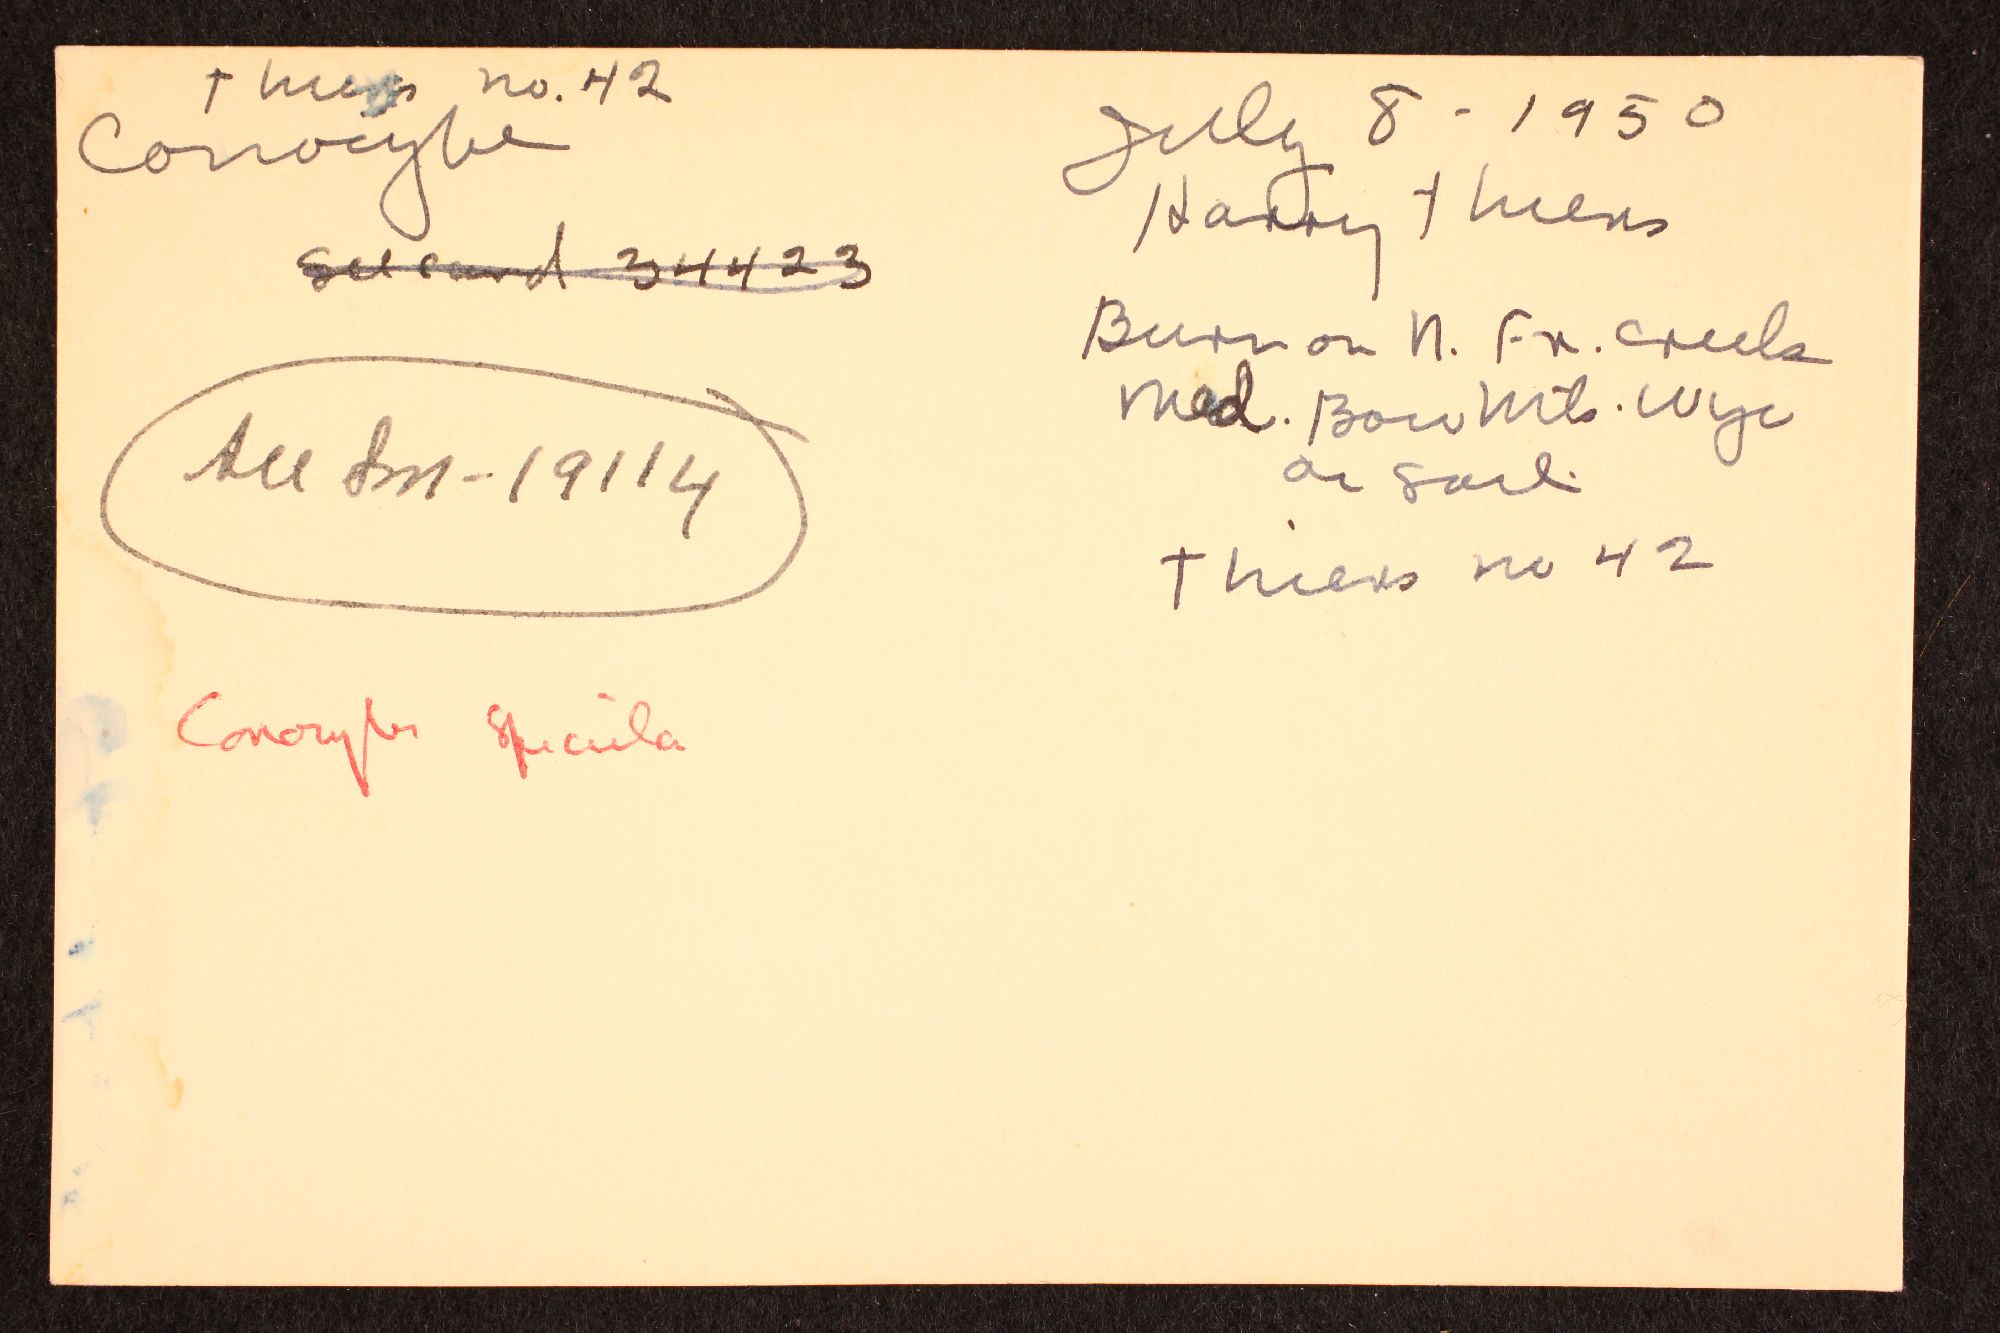 Thiers no. 42
Conocybe
see card 34423
see Sm-19114
Conocybe spicula
July 8 - 1950
Harry Thiers
Burn on N. Fr. Creek
Med. Bow Mts. Wyo
on soil.
Thiers no 42